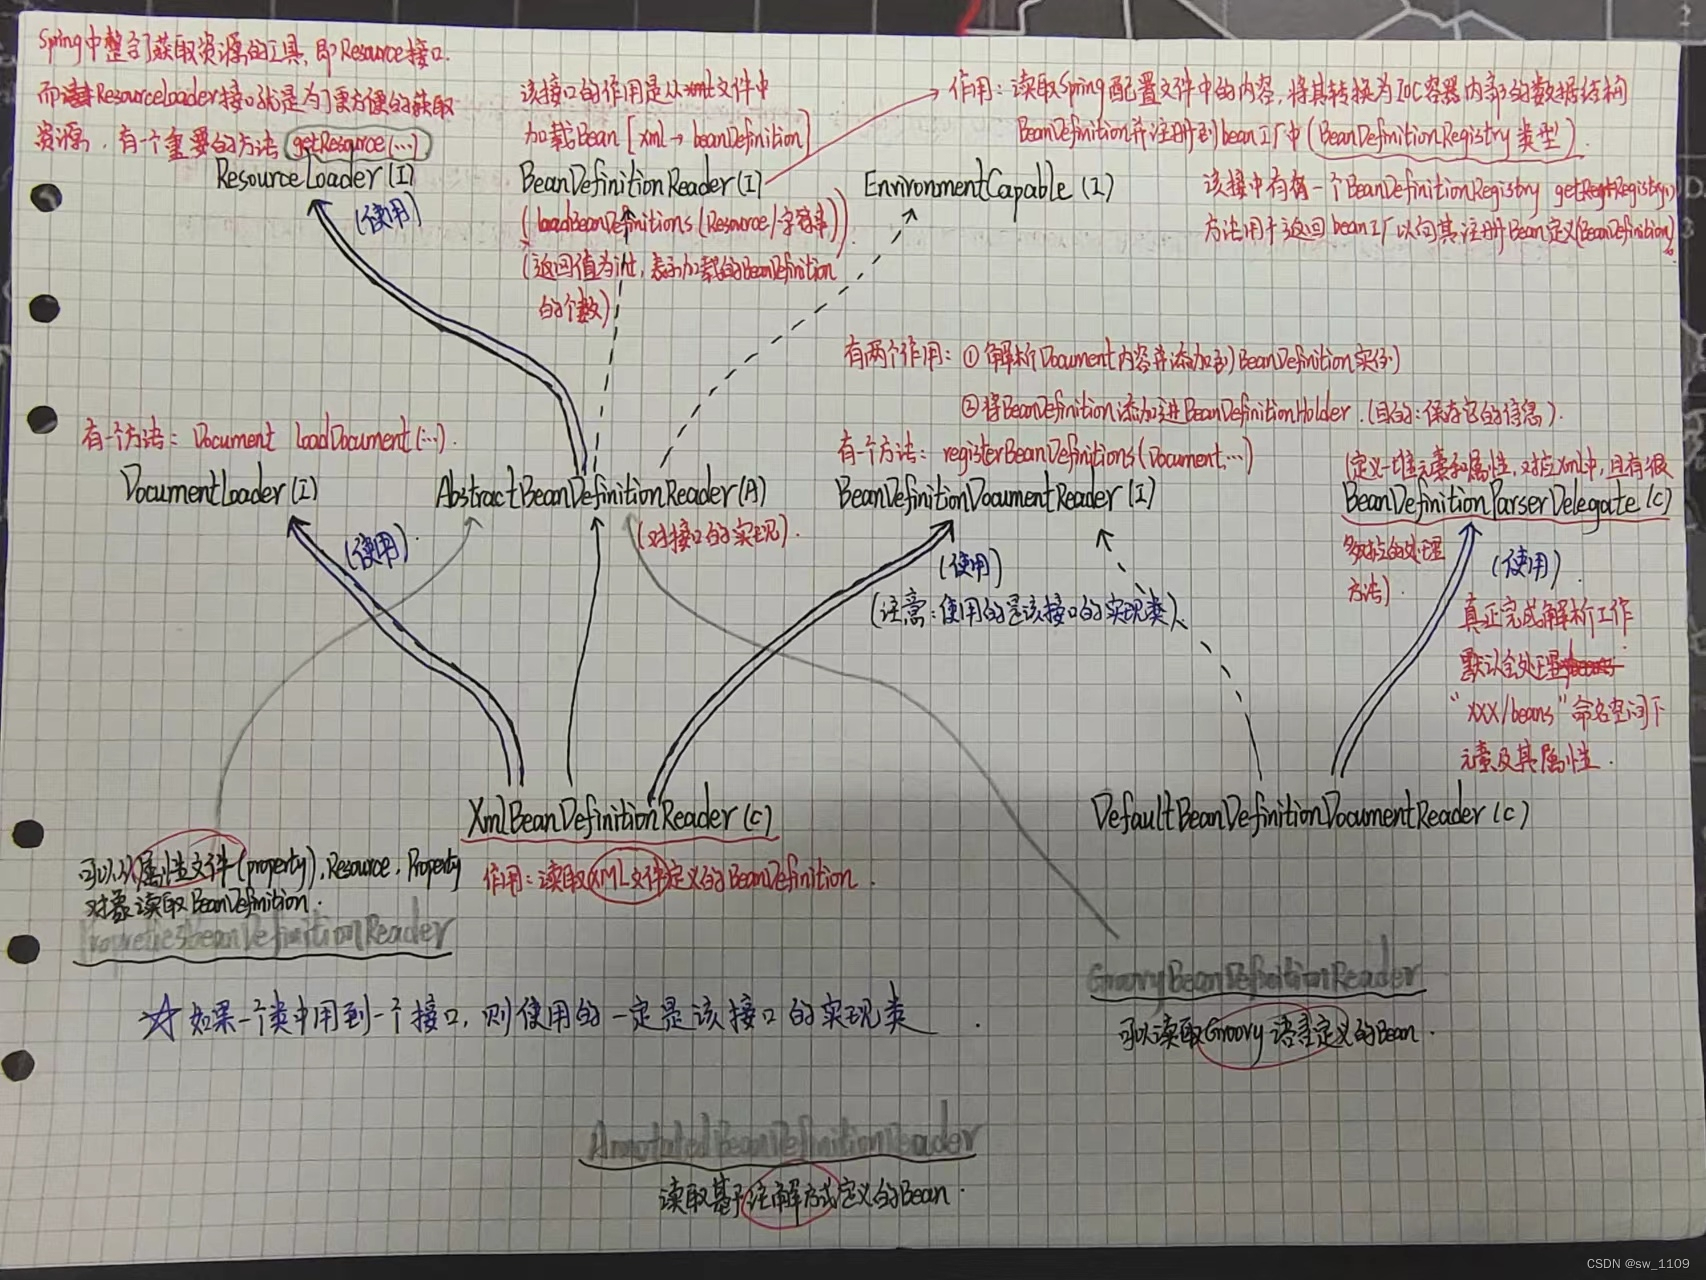 Spring中整合了获取资源的工具,即Resource接口.
而ResourceLoader接口就是为了更方便的获取
资源,有一个重要的方法 getResource(…)
ResourceLoader(I)
(使用)
该接口的作用是从xml文件中
加载Bean [xml→beanDefinition]
BeanDefinitionReader(I)
(loadBeanDefinitions(Resource/字符串))
(返回值为int,表示加载的BeanDefinition
的个数)
EnvironmentCapable(I)
作用:读取Spring配置文件中的内容,将其转换为IOC容器内部的数据结构
BeanDefinition并注册到bean工厂中(BeanDefinitionRegistry类型).
该接中有一个BeanDefinitionRegistry getRegistry()
方法用于返回bean工厂以向其注册Bean定义(BeanDefinition)
有两个作用:①解析Document内容并添加到BeanDefinition实例
②将BeanDefinition添加进BeanDefinitionHolder.(目的:保存它的信息).
有一个方法: Document loadDocument(…).
DocumentLoader(I)
(使用).
AbstractBeanDefinitionReader(A)
(对接口的实现).
有一个方法: registerBeanDefinitions(Document,…)
BeanDefinitionDocumentReader(I)
(使用)
(注意:使用的是该接口的实现类)
(定义一堆元素和属性,对应xml中,且有很
BeanDefinitionParserDelegate(C)
多对应的处理
方法).
(使用).
真正完成解析工作
默认会处理
"XXX/beans"命名空间下
元素及其属性.
XmlBeanDefinitionReader(C)
作用:读取XML文件定义的BeanDefinition.
DefaultBeanDefinitionDocumentReader(C)
可以从属性文件(property),Resource,Property
对象读取BeanDefinition.
PropretiesbeanDefinitionReader
☆如果一个类中用到一个接口,则使用的一定是该接口的实现类.
GroovyBeanDefinitionReader
可以读取Groovy语言定义的Bean.
AnnotatedBeanDefinitionReader
读取基于注解方式定义的Bean.
CSDN @sw_1109